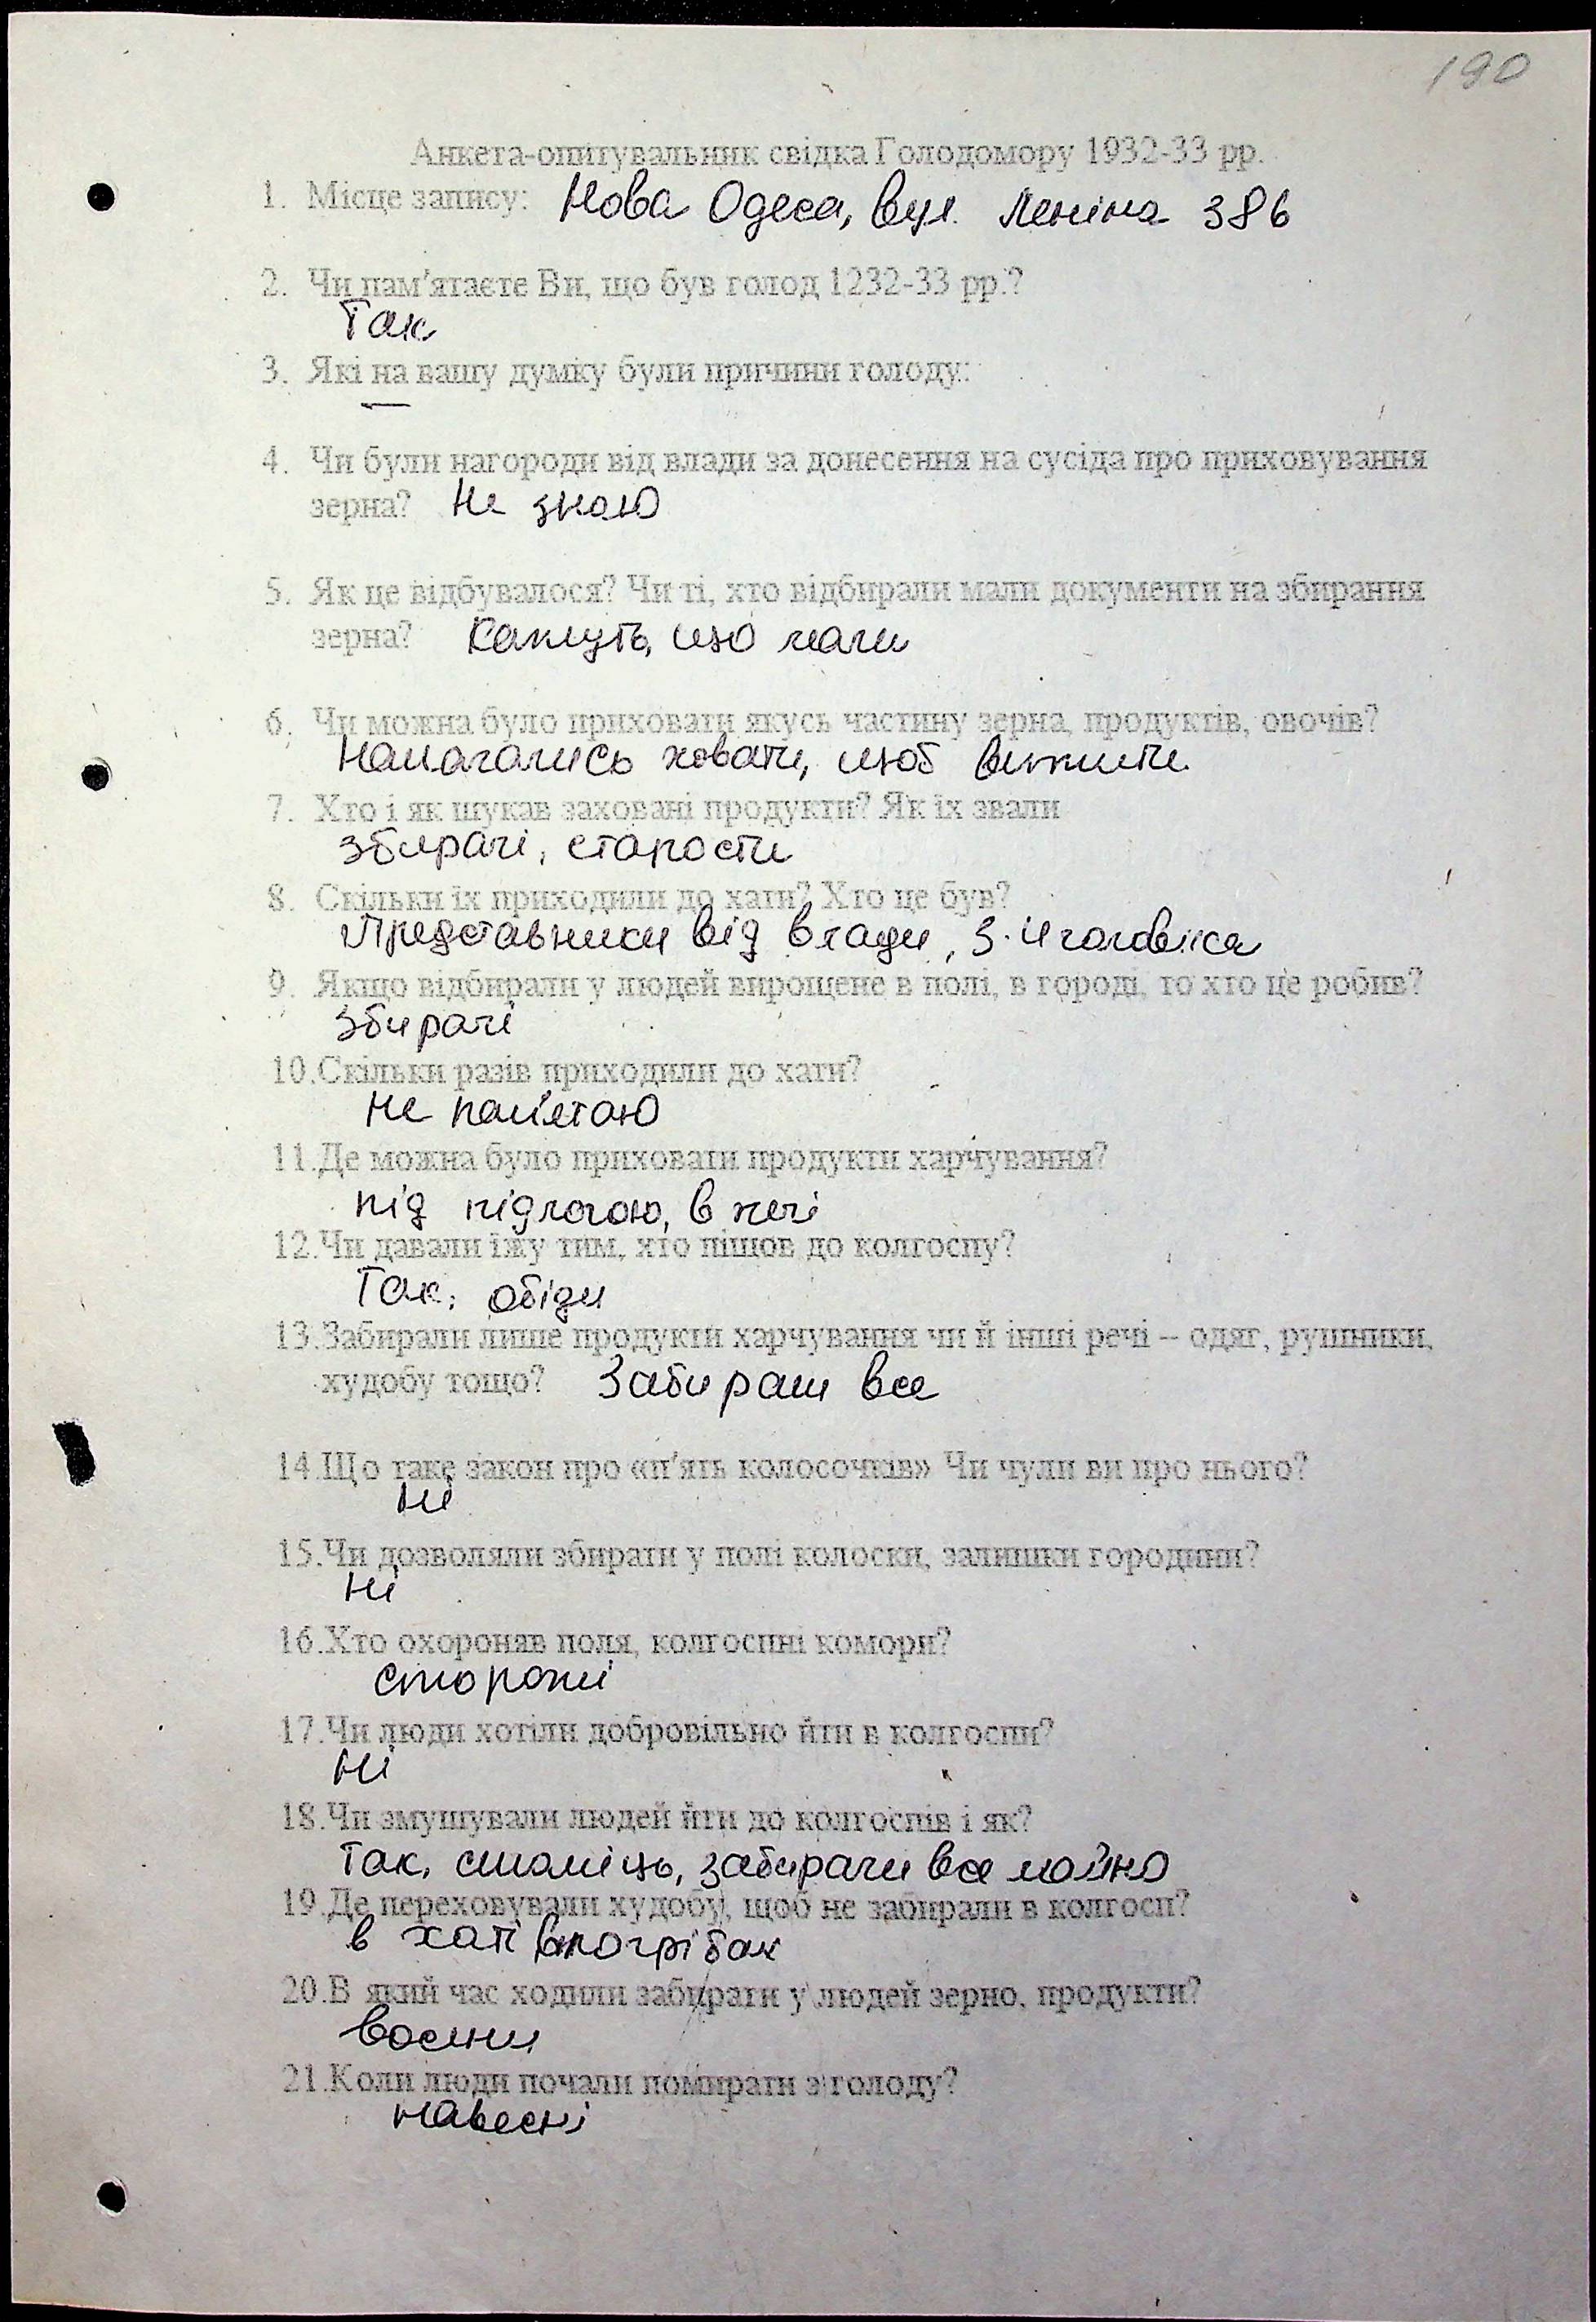 190
Анкета-опитувальник свідка Голодомору 1932-33 рр.
1. Місце запису: Нова Одеса, вул. Леніна 386
2. Чи пам'ятаєте Ви, що був голод 1232-33 рр.?
Так
3. Які на вашу думку були причини голоду:
—
4. Чи були нагороди від влади за донесення на сусіда про приховування
зерна? Не знаю
5. Як це відбувалося? Чи ті, хто відбирали мали документи на збирання
зерна? Кажуть, що мали
6. Чи можна було приховати якусь частину зерна, продуктів, овочів?
Намагались ховати, щоб вижити.
7. Хто і як шукав заховані продукти? Як їх звали
збирачі, старости
8. Скільки їх приходили до хати? Хто це був?
Представники від влади, 3-4 чоловіка
9. Якщо відбирали у людей вирощене в полі, в городі, то хто це робив?
Збирачі
10.Скільки разів приходили до хати?
Не пам'ятаю
11.Де можна було приховати продукти харчування?
під підлогою, в печі
12.Чи давали їжу тим, хто пішов до колгоспу?
Так, обіди
13.Забирали лише продукти харчування чи й інші речі – одяг, рушники,
худобу тощо? Забирали все
14.Що таке закон про «п'ять колосочків» Чи чули ви про нього?
Ні
15.Чи дозволяли збирати у полі колоски, залишки городини?
Ні
16.Хто охороняв поля, колгоспні комори?
сторожі
17.Чи люди хотіли добровільно йти в колгоспи?
Ні
18.Чи змушували людей йти до колгоспів і як?
Так, забирали все майно
19.Де переховували худобу, щоб не забирали в колгосп?
в хаті в погрібах
20.В який час ходили забирати у людей зерно, продукти?
восени
21.Коли люди почали помирати з голоду?
навесні